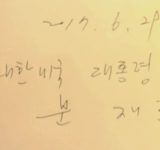 2017. 6. 29
대한민국 대통령
문 재